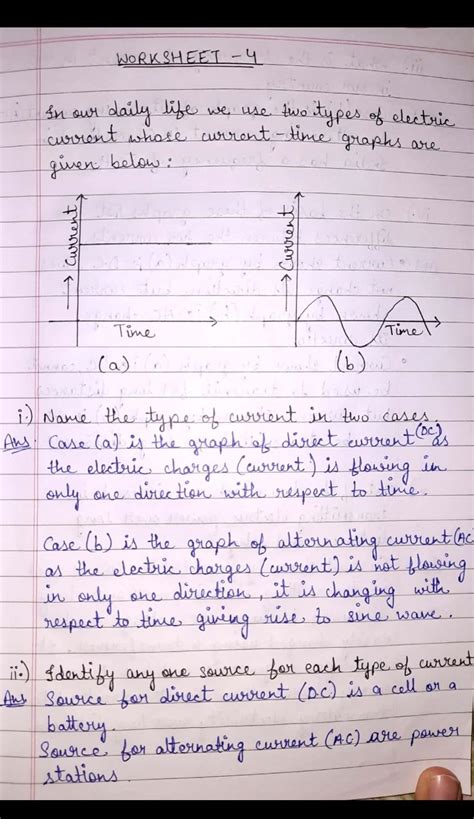 WORKSHEET - 4
In our daily life we use two types of electric
current whose current-time graphs are
given below:
→ Current
→ Current
Time
Time
(a)
(b)
i.) Name the type of current in two cases.
Ans. Case (a) is the graph of direct current (DC) as
the electric charges (current) is flowing in
only one direction with respect to time.
Case (b) is the graph of alternating current (AC
as the electric charges (current) is not flowing
in only one direction, it is changing with
respect to time giving rise to sine wave.
ii.) Identify any one source for each type of current
Ans Source for direct current (DC) is a cell or a
battery.
Source for alternating current (AC) are power
stations.